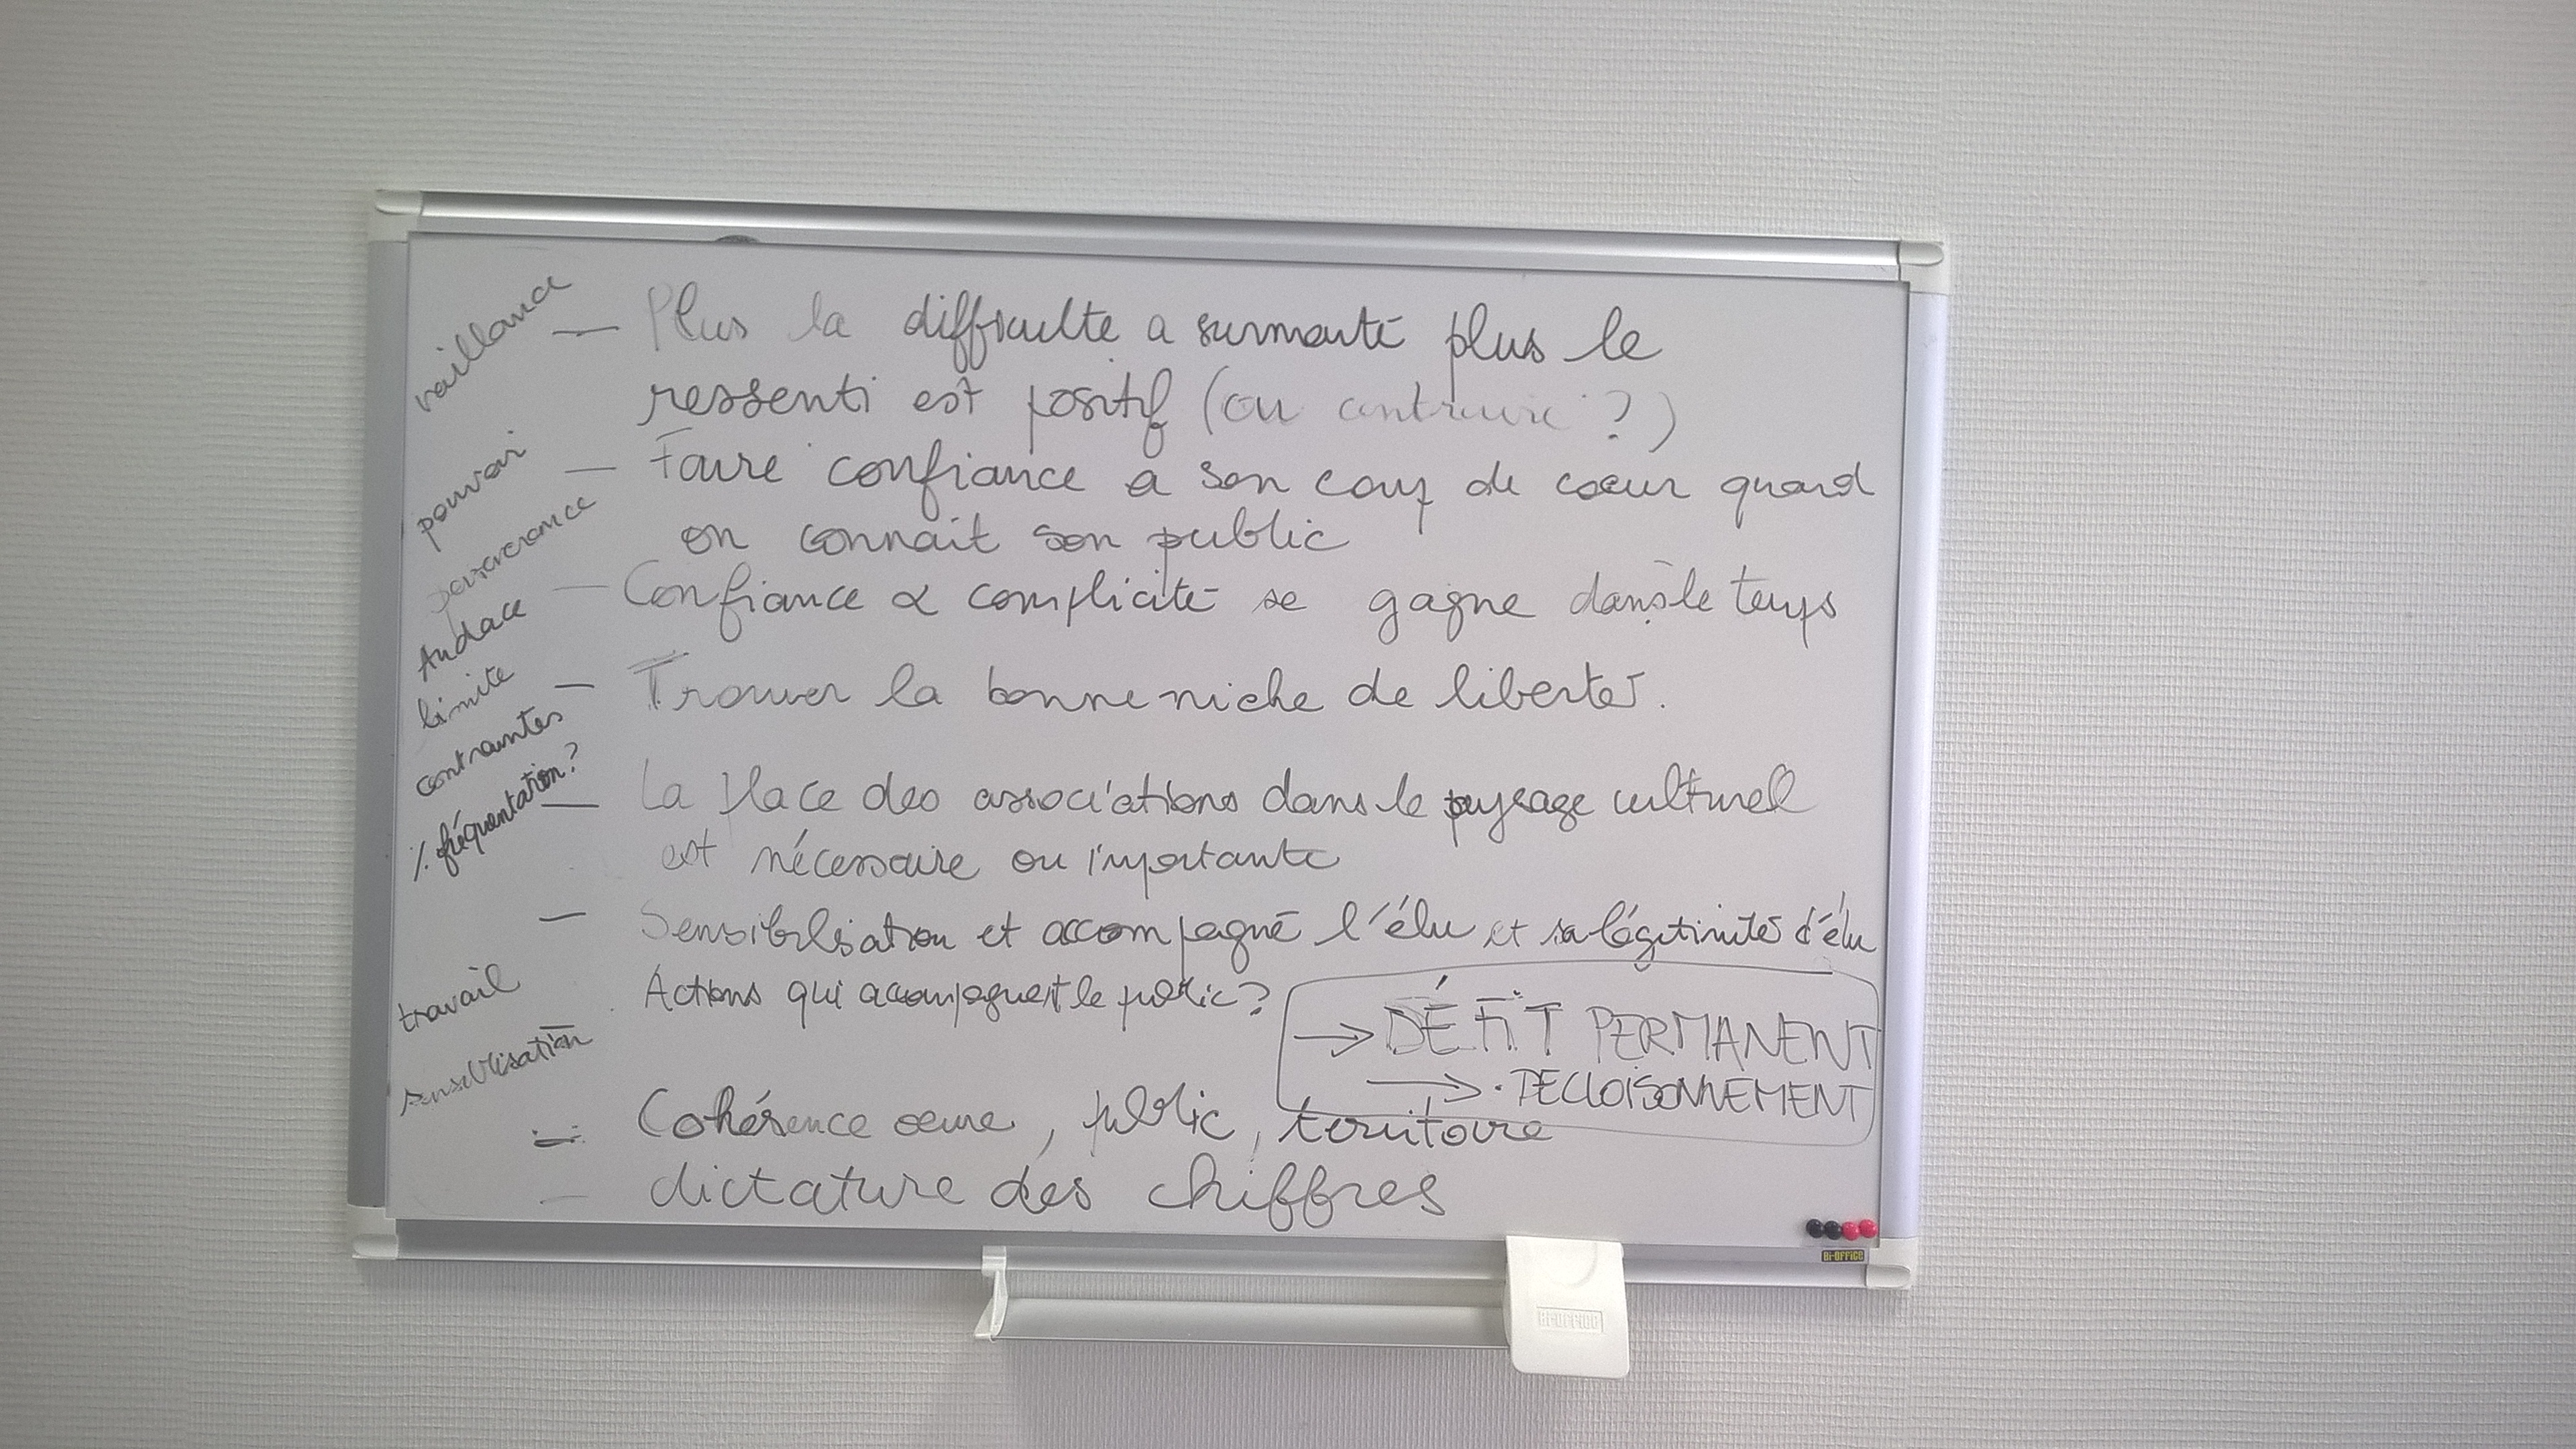 vaillance
pouvoir
perseverance
Audace
limite
contraintes
% fréquentation?
travail
sensibilisation
— Plus la difficulte a surmonté plus le
ressenti est positif (ou contraire ?)
— Faire confiance a son coup de coeur quand
on connait son public
— Confiance & complicité se gagne dans le temps
— Trouver la bonne niche de liberter.
— La place des associations dans le paysage culturel
est nécessaire ou importante
— Sensibilisation et accompagné l'élu et sa légitimité d'élu
Actions qui accompagnent le public?
→ DÉFIT PERMANENT
→ . DECLOISONNEMENT
— Cohérence oeuvre, public, territoire
— dictature des chiffres
Bi-OFFICE
Bi-OFFICE